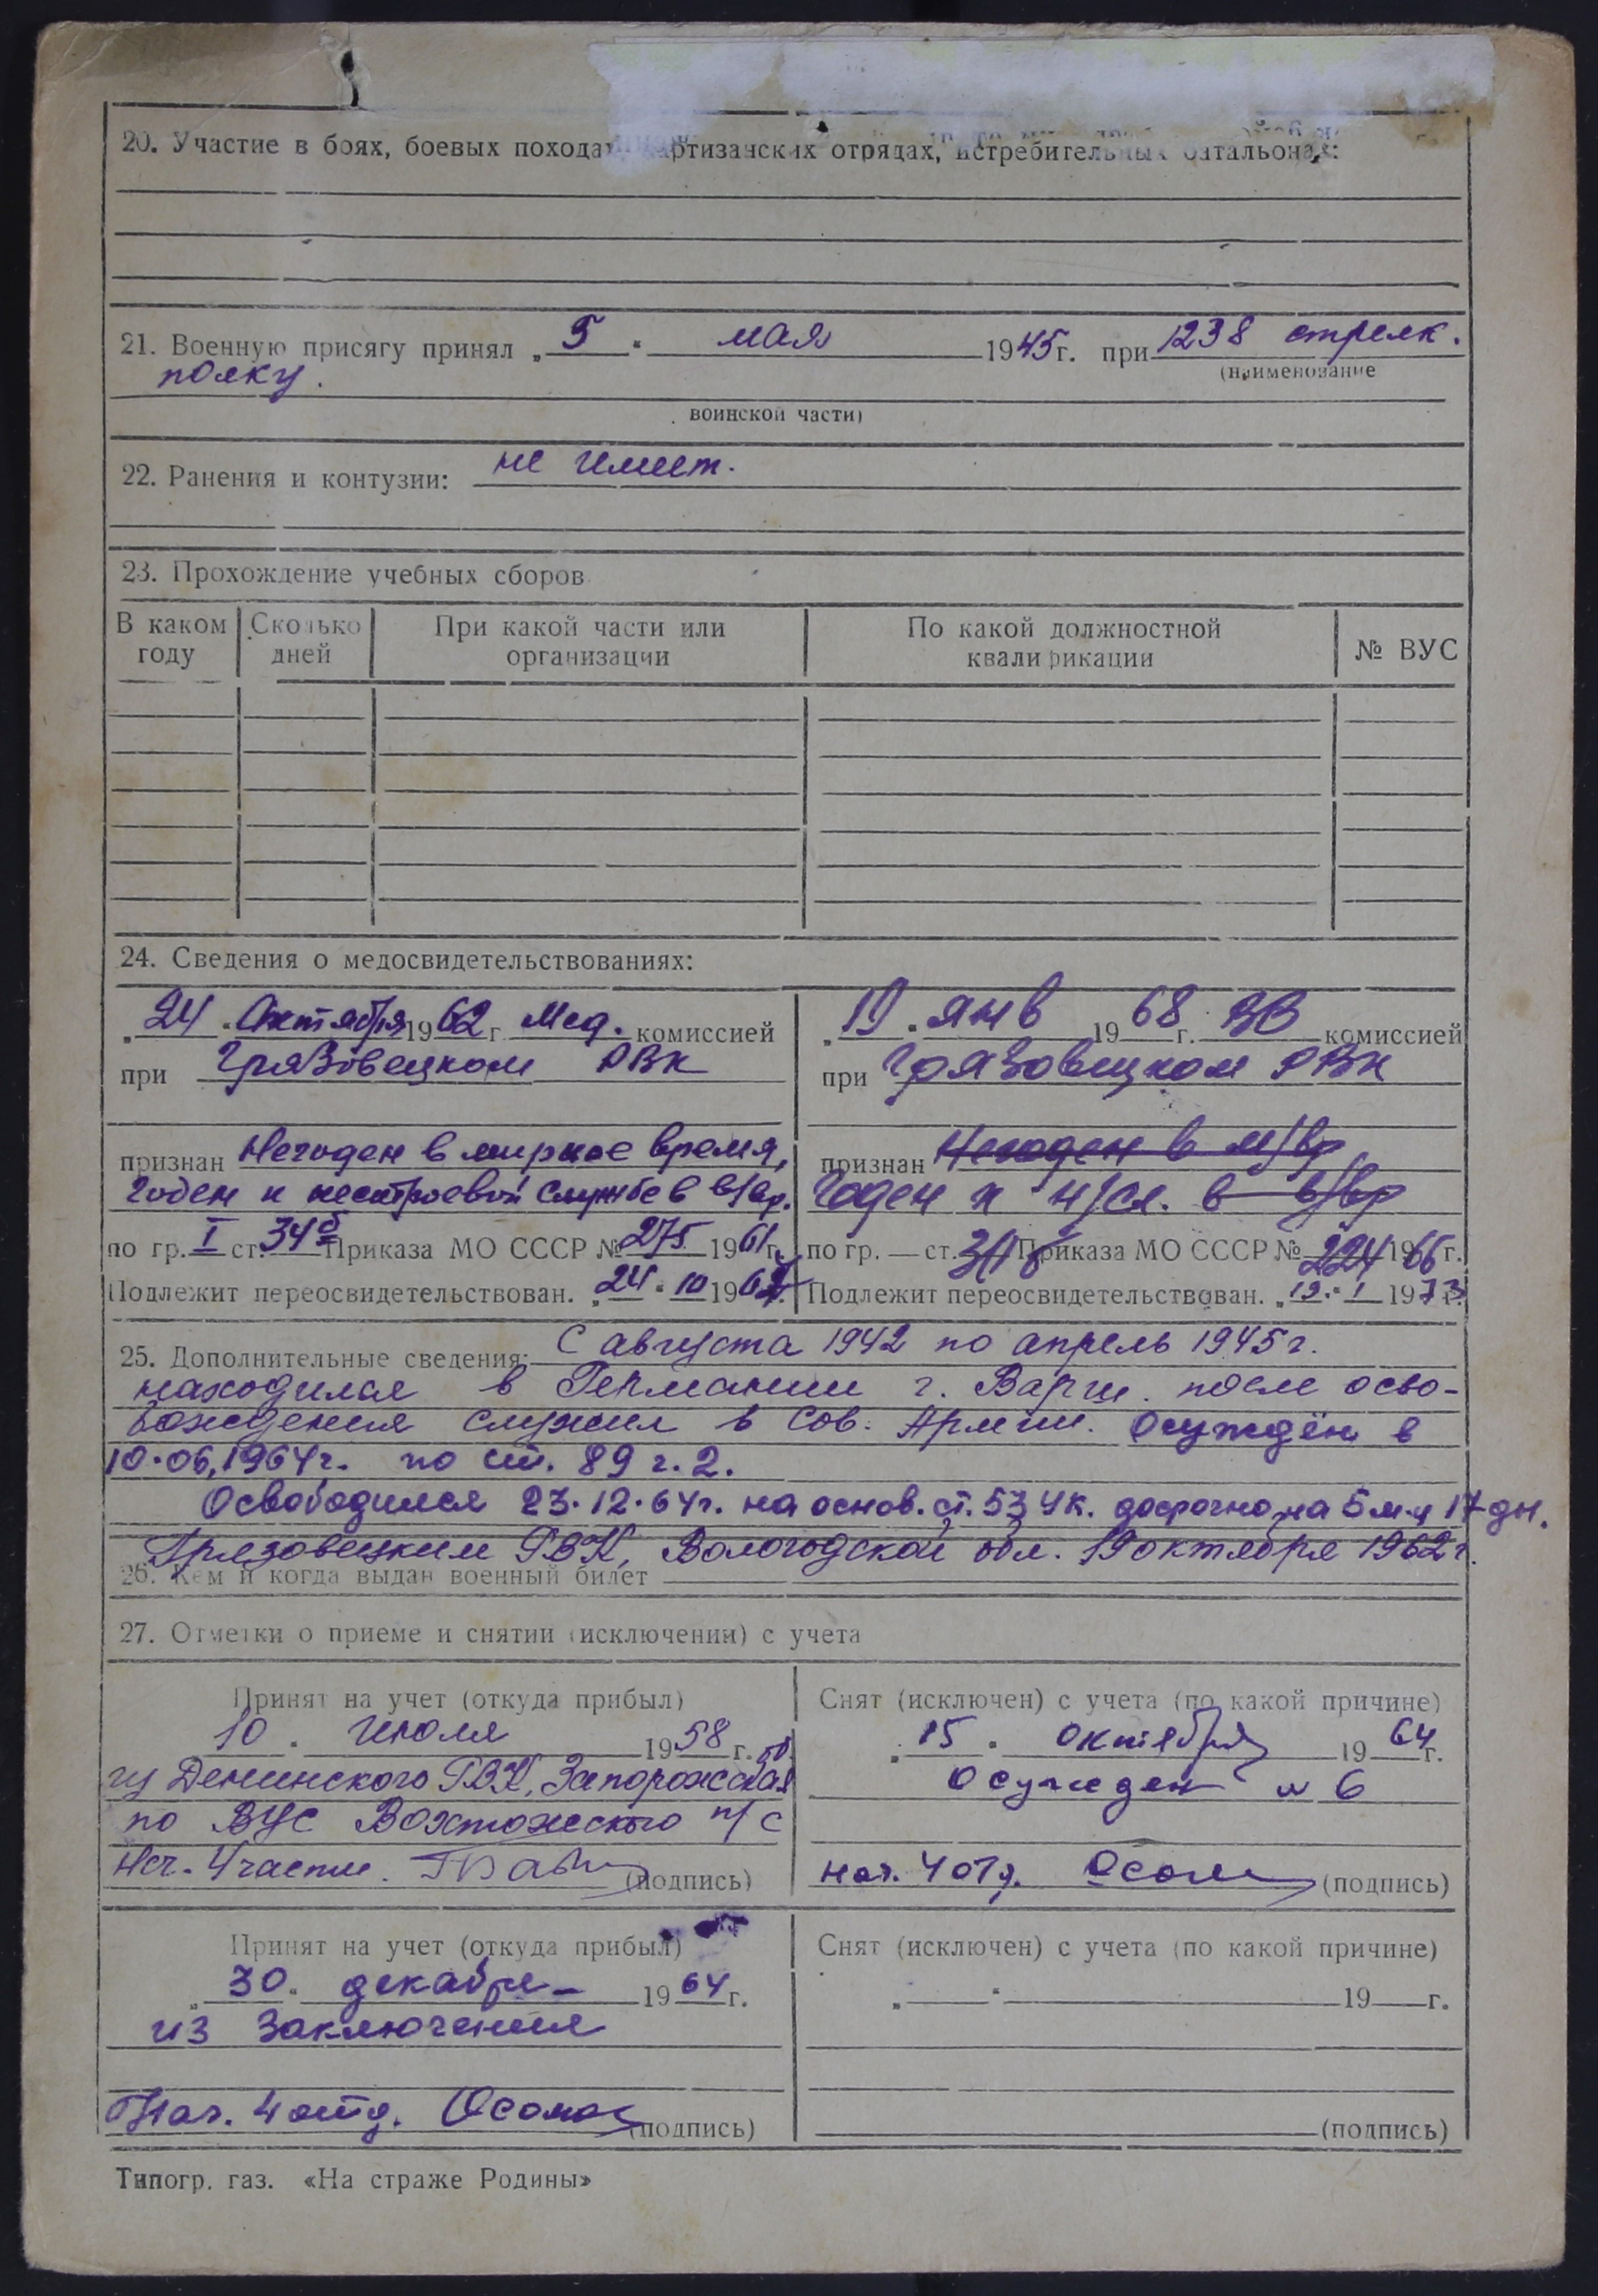 20. Участие в боях, боевых походах, партизанских отрядах, истребительных батальонах:
21. Военную присягу принял „5“ мая 1945г. при 1238 стрелк.
(наименование
полку.
воинской части)
22. Ранения и контузии: не имеет.
23. Прохождение учебных сборов
В каком году
Сколько дней
При какой части или организации
По какой должностной квалификации
№ ВУС
24. Сведения о медосвидетельствованиях:
„24“ Октября 1962г. Мед. комиссией
при Грязовецком РВК
признан Негоден в мирное время,
годен к нестроевой службе в в/вр.
по гр. I ст. 34б Приказа МО СССР № 275 1961г.
Подлежит переосвидетельствован. „24“ 10 196
„19“ янв 1968г. комиссией
при Грязовецком РВК
признан Негоден в м/вр
Годен к н/сл. в в/вр
по гр. — ст. Приказа МО СССР № 224 1966г.
Подлежит переосвидетельствован. „19“ I 1973г.
25. Дополнительные сведения: С августа 1942 по апрель 1945г.
находился в Германии г. после осво-
бождения служил в Сов. Армии. Осуждён в
10.06.1964г. по ст. 89 ч. 2.
Освободился 23.12.64г. на основ. ст. 53 УК. досрочно на 5 м. и 17 дн.
Грязовецким РВК, Вологодской обл. 19 октября 1962г.
26. Кем и когда выдан военный билет
27. Отметки о приеме и снятии (исключении) с учета
Принят на учет (откуда прибыл)
10. июля 1958г.
из РВК, Запорожская об.
по ВУС Вохтожского п/с
Нач. 4 части. (подпись)
Снят (исключен) с учета (по какой причине)
„15“ октября 1964г.
осужден № 6
нач. 4 отд. (подпись)
Принят на учет (откуда прибыл)
„30“ декабря 1964г.
из заключения
Нач. 4 отд. (подпись)
Снят (исключен) с учета (по какой причине)
„ “ 19 г.
(подпись)
Типогр. газ. «На страже Родины»